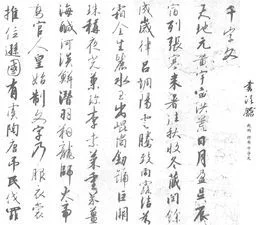 千字文
天地元黃宇宙洪荒日月盈昃辰
宿列張寒来暑往秋收冬藏閏餘
成歲律呂調陽雲騰致雨露結為
霜金生麗水玉出崑岡劍號巨闕
珠稱夜光菓珍李柰菜重芥薑
海鹹河淡鱗潛羽翔龍師火帝
鳥官人皇始制文字乃服衣裳
推位遜國有虞陶唐弔民伐罪